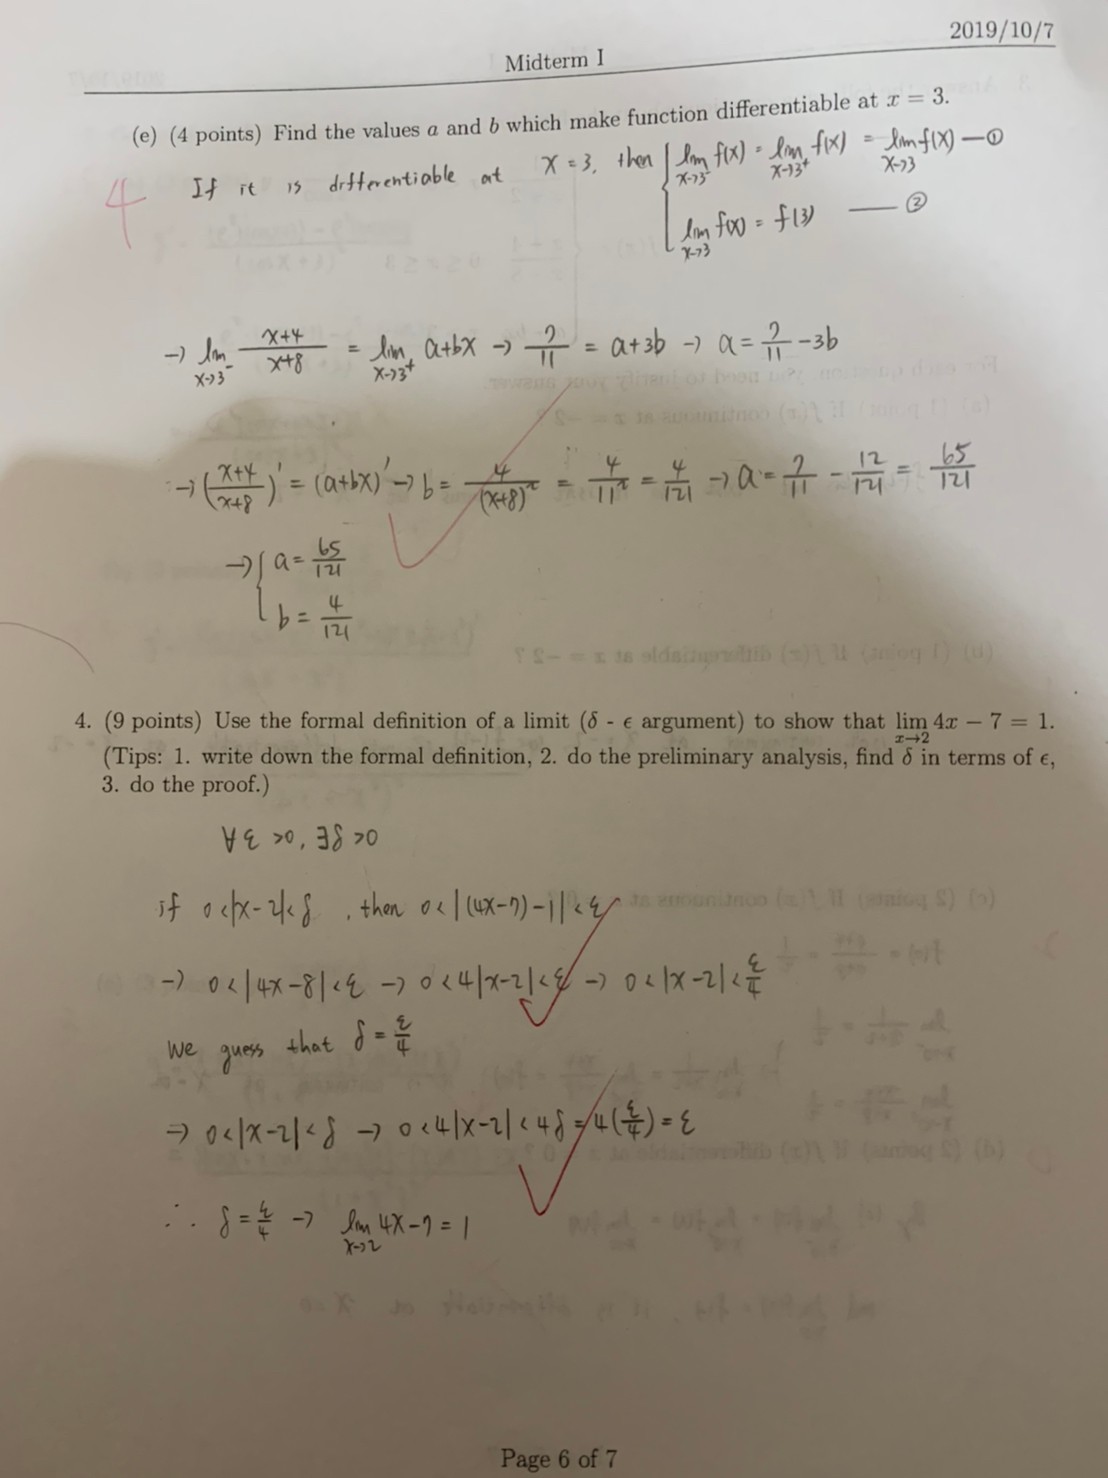 2019/10/7
Midterm I
(e) (4 points) Find the values a and b which make function differentiable at x = 3.
4
If it is differentiable at x = 3, then { lim x→3⁻ f(x) = lim x→3⁺ f(x) = lim x→3 f(x) — ①
lim x→3 f(x) = f(3) — ②
→ lim x→3⁻ (x+4)/(x+8) = lim x→3⁺ a+bx → 7/11 = a+3b → a = 7/11 − 3b
→ ((x+4)/(x+8))' = (a+bx)' → b = 4/(x+8)² = 4/11² = 4/121 → a = 7/11 − 12/121 = 65/121
→ { a = 65/121
b = 4/121
4. (9 points) Use the formal definition of a limit (δ - ϵ argument) to show that lim x→2 4x − 7 = 1.
(Tips: 1. write down the formal definition, 2. do the preliminary analysis, find δ in terms of ϵ,
3. do the proof.)
∀ ε >0, ∃δ >0
if 0<|x-2|<δ , then 0<|(4x-7)-1|<ε
→ 0<|4x-8|<ε → 0<4|x-2|<ε → 0<|x-2|<ε/4
We guess that δ = ε/4
⇒ 0<|x-2|<δ → 0<4|x-2|<4δ = 4(ε/4) = ε
∴ δ = ε/4 → lim x→2 4x-7 = 1
Page 6 of 7